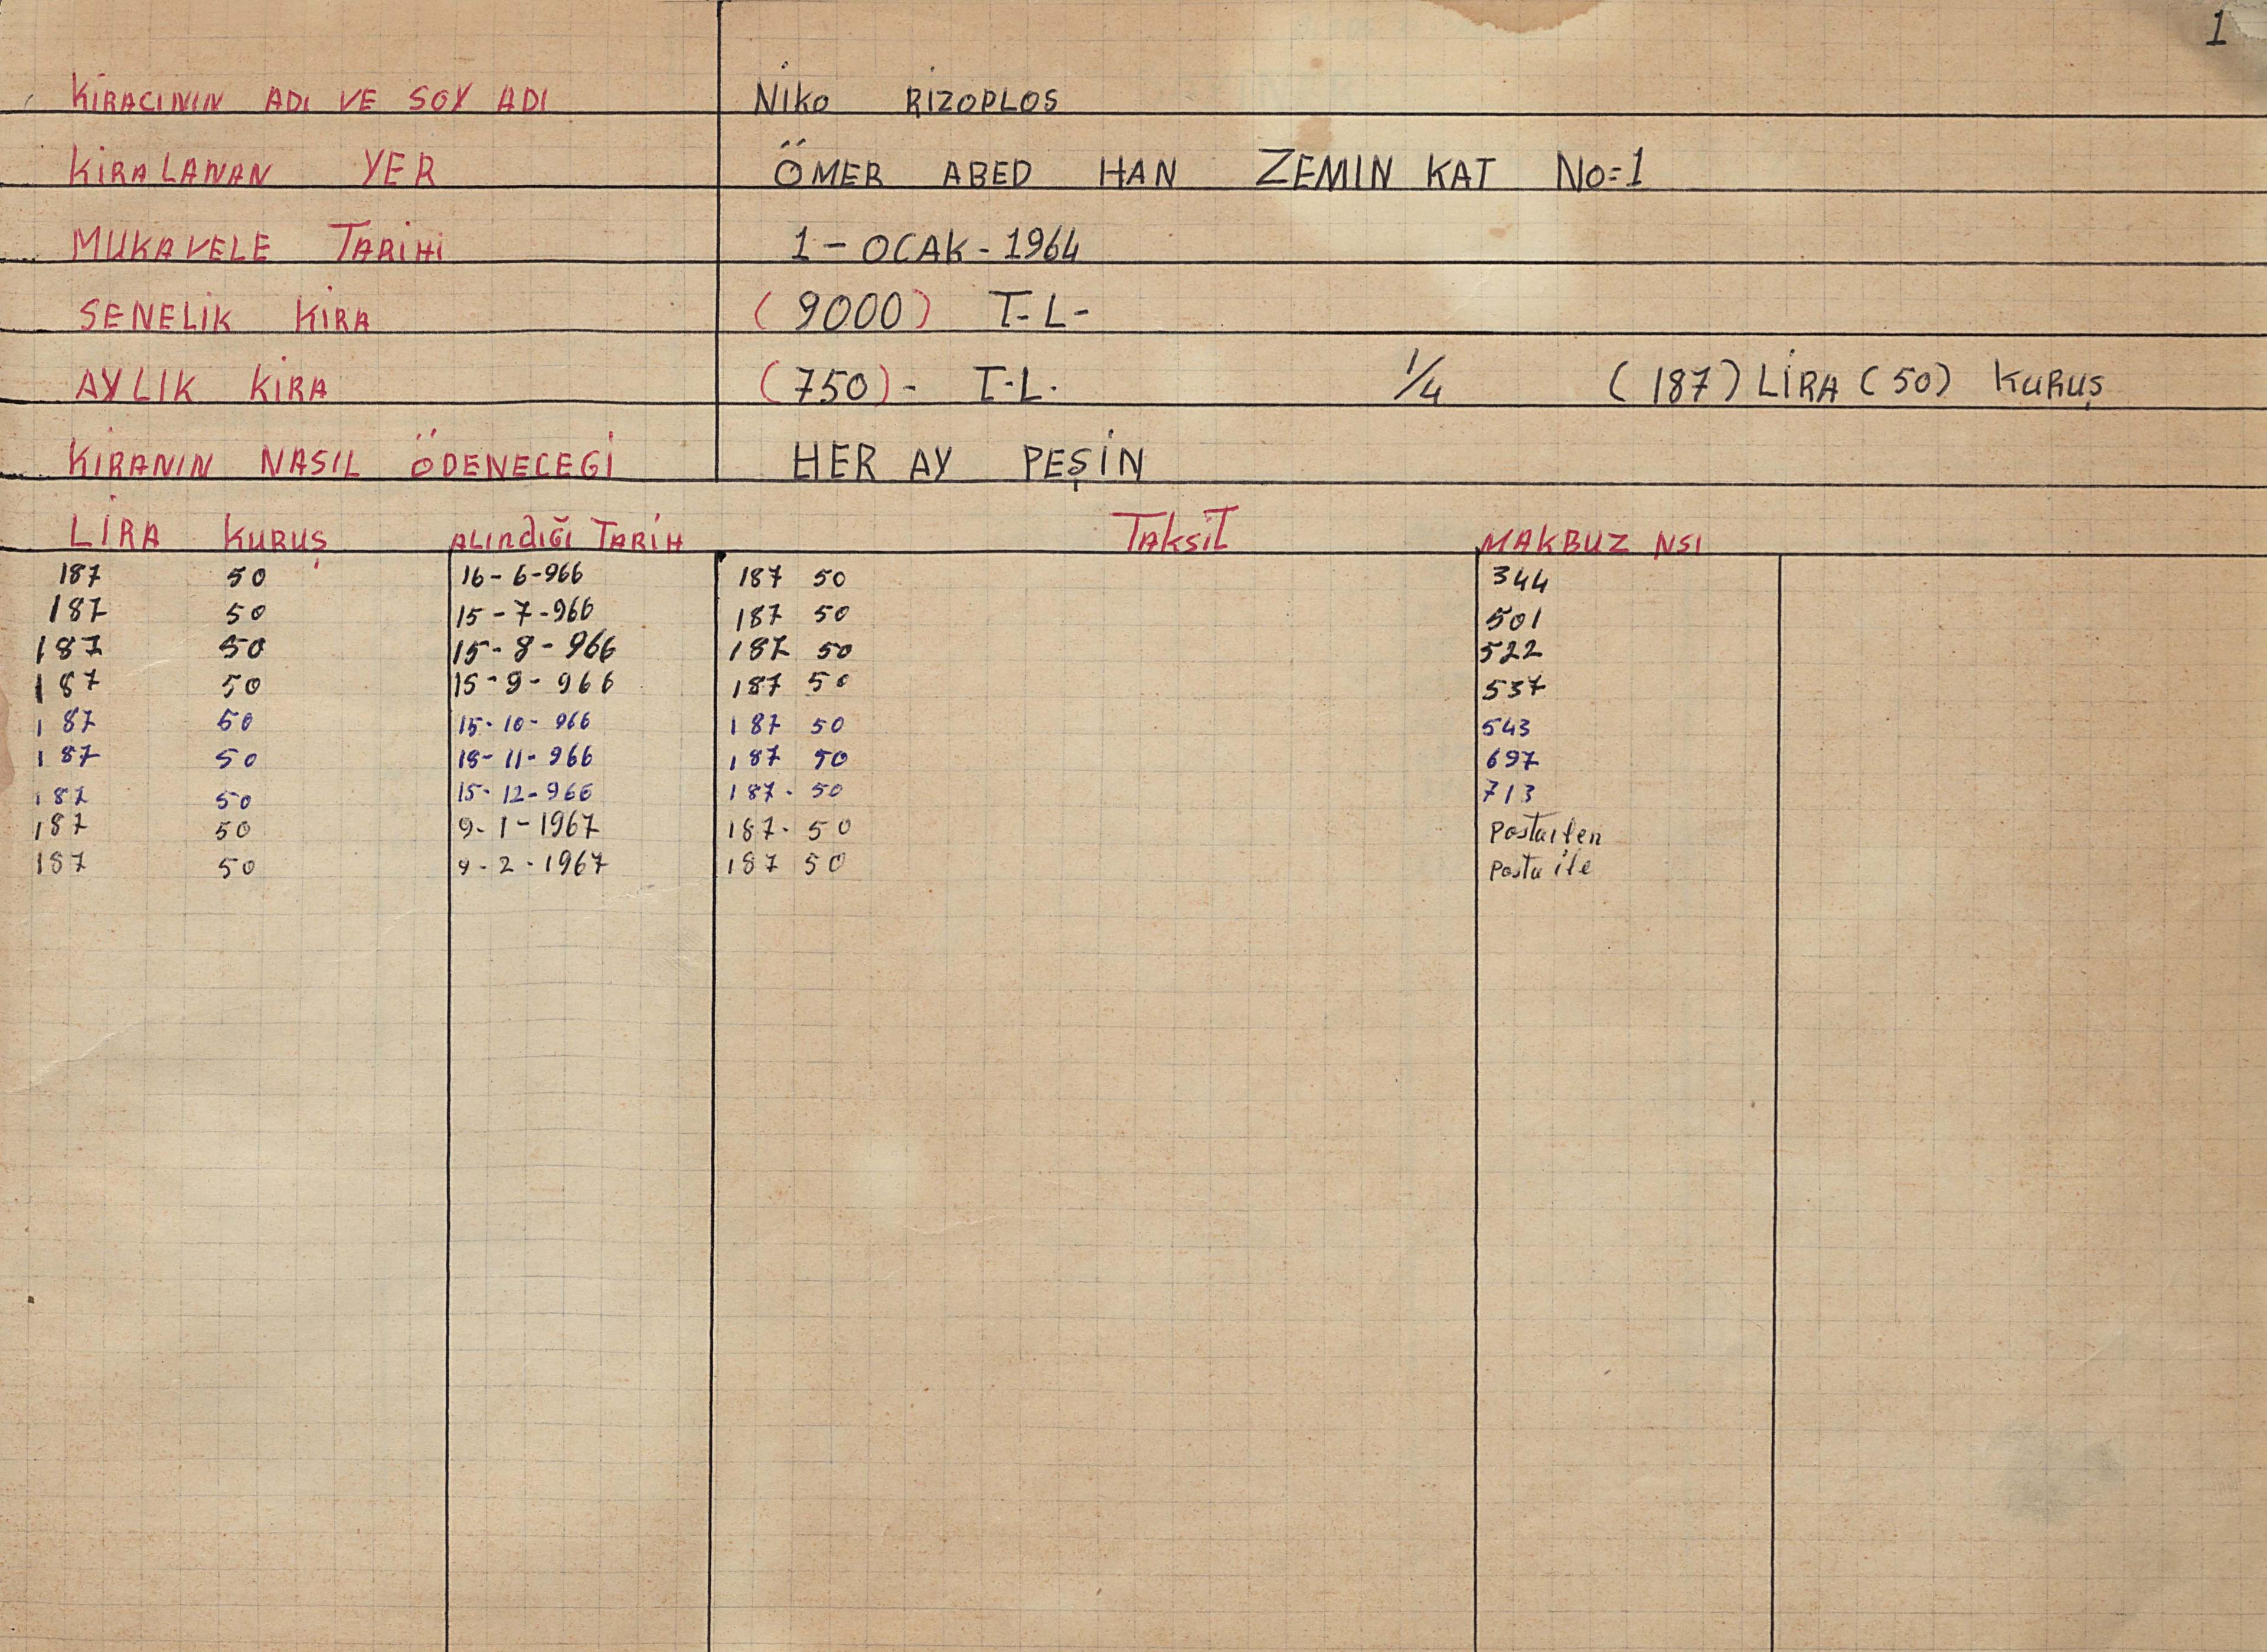 1
KİRACININ ADI VE SOY ADI NİKO RIZOPLOS
KİRALANAN YER ÖMER ABED HAN ZEMIN KAT No=1
MUKAVELE TARİHİ 1-OCAK-1964
SENELİK KİRA (9000) T-L-
AYLIK KİRA (750)- T-L- 1/4 (187) LİRA (50) KURUŞ
KİRANIN NASIL ÖDENECEGİ HER AY PEŞİN
LİRA KURUŞ ALINDIĞI TARİH TAKSİT MAKBUZ NSI
187 50 16-6-966 187 50 344
187 50 15-7-966 187 50 501
187 50 15-8-966 187 50 522
187 50 15-9-966 187 50 537
187 50 15-10-966 187 50 543
187 50 18-11-966 187 50 697
187 50 15-12-966 187-50 713
187 50 9-1-1967 187-50 Posta
187 50 9-2-1967 187 50 Posta ile